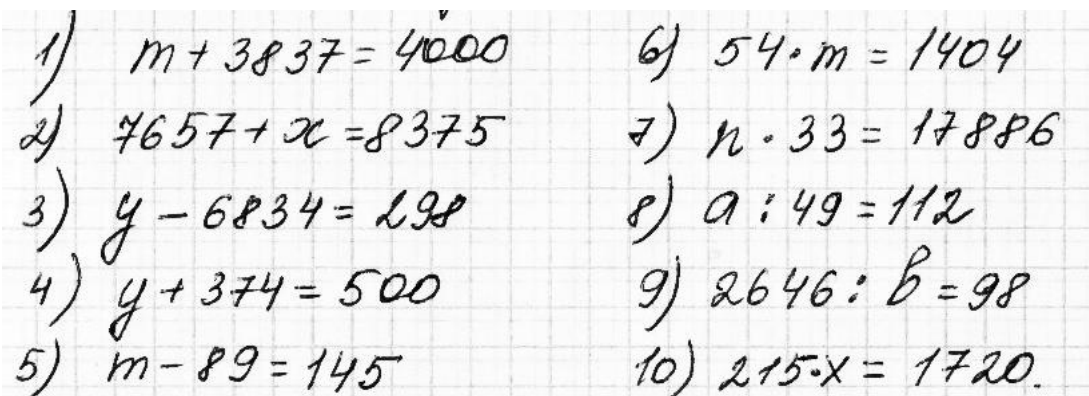 1) m + 3837 = 4000
2) 7657 + x = 8375
3) y - 6834 = 298
4) y + 374 = 500
5) m - 89 = 145
6) 54 · m = 1404
7) n · 33 = 17886
8) a : 49 = 112
9) 2646 : b = 98
10) 215 · x = 1720.